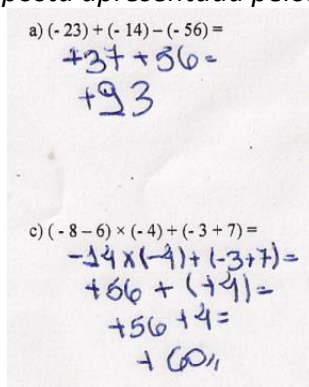 a) (- 23) + (- 14) – (- 56) =
+37 + 56 =
+93
c) ( - 8 – 6) × (- 4) + (- 3 + 7) =
-14 x (-4) + (-3+7) =
+56 + (+4) =
+56 + 4 =
+ 60,,